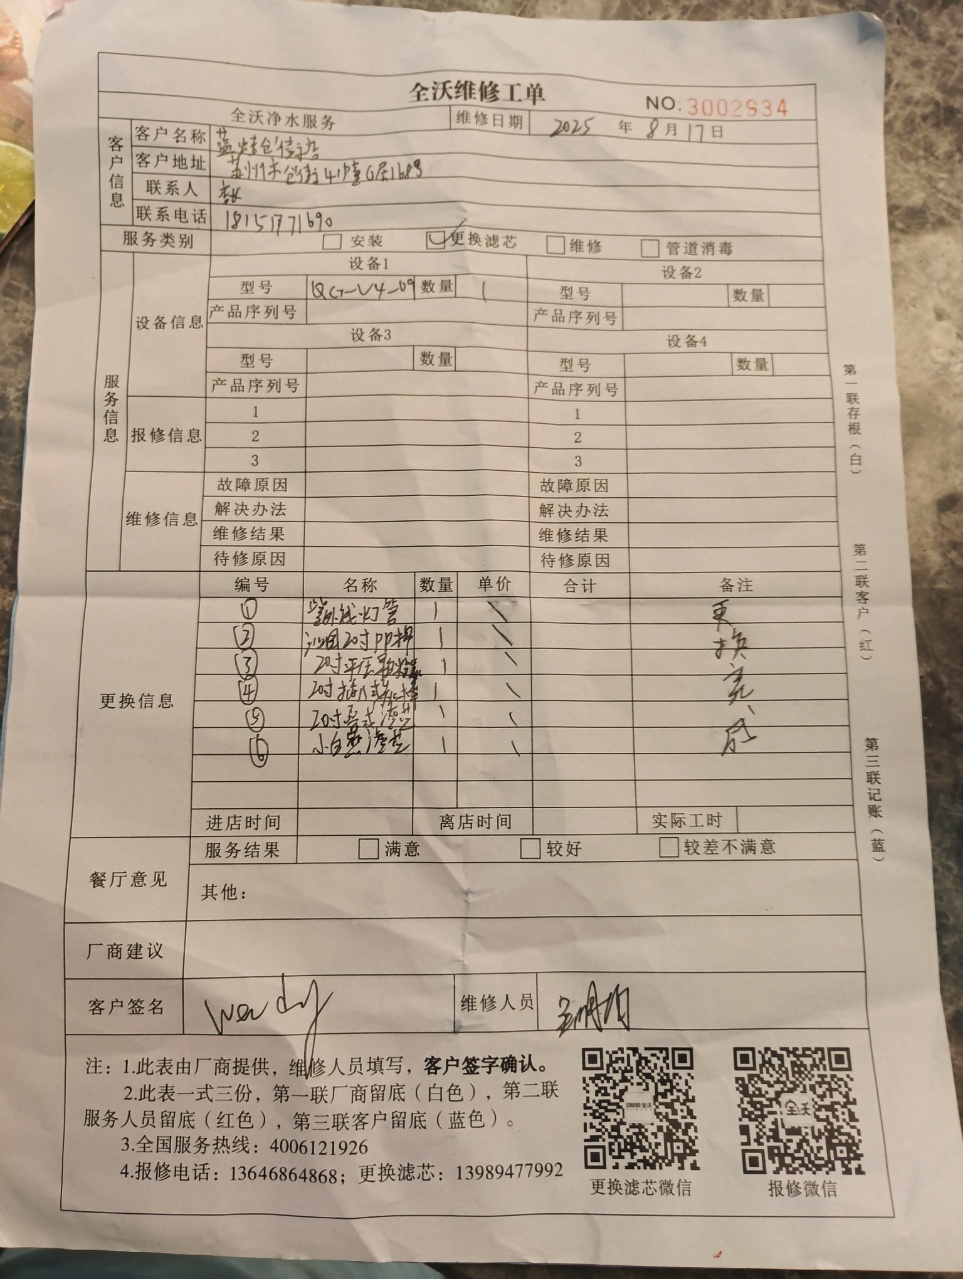 全沃维修工单
NO.3002934
全沃净水服务 维修日期 2025 年 8 月 17 日
客户信息
客户名称
客户地址 苏州市 街 4幢G层1688
联系人
联系电话 18151771690
服务类别 安装 更换滤芯 维修 管道消毒
服务信息
设备信息
设备1 设备2
型号 QG-V4-09 数量 1 型号 数量
产品序列号 产品序列号
设备3 设备4
型号 数量 型号 数量
产品序列号 产品序列号
报修信息
1 1
2 2
3 3
维修信息
故障原因 故障原因
解决办法 解决办法
维修结果 维修结果
待修原因 待修原因
更换信息
编号 名称 数量 单价 合计 备注
① 紫外线灯管 1 \ 更
② 20寸PP棉 1 \ 换
③ 20寸平压 1 \ 完
④ 20寸插入式 1 \ 成
⑤ 20寸 式滤芯 1 \
⑥ 小白 滤芯 1 \
进店时间 离店时间 实际工时
餐厅意见
服务结果 满意 较好 较差不满意
其他：
厂商建议
客户签名 Wendy 维修人员
注：1.此表由厂商提供，维修人员填写，客户签字确认。
2.此表一式三份，第一联厂商留底（白色），第二联
服务人员留底（红色），第三联客户留底（蓝色）。
3.全国服务热线：4006121926
4.报修电话：13646864868；更换滤芯：13989477992
更换滤芯微信 报修微信
全沃
第一联存根（白）
第二联客户（红）
第三联记账（蓝）